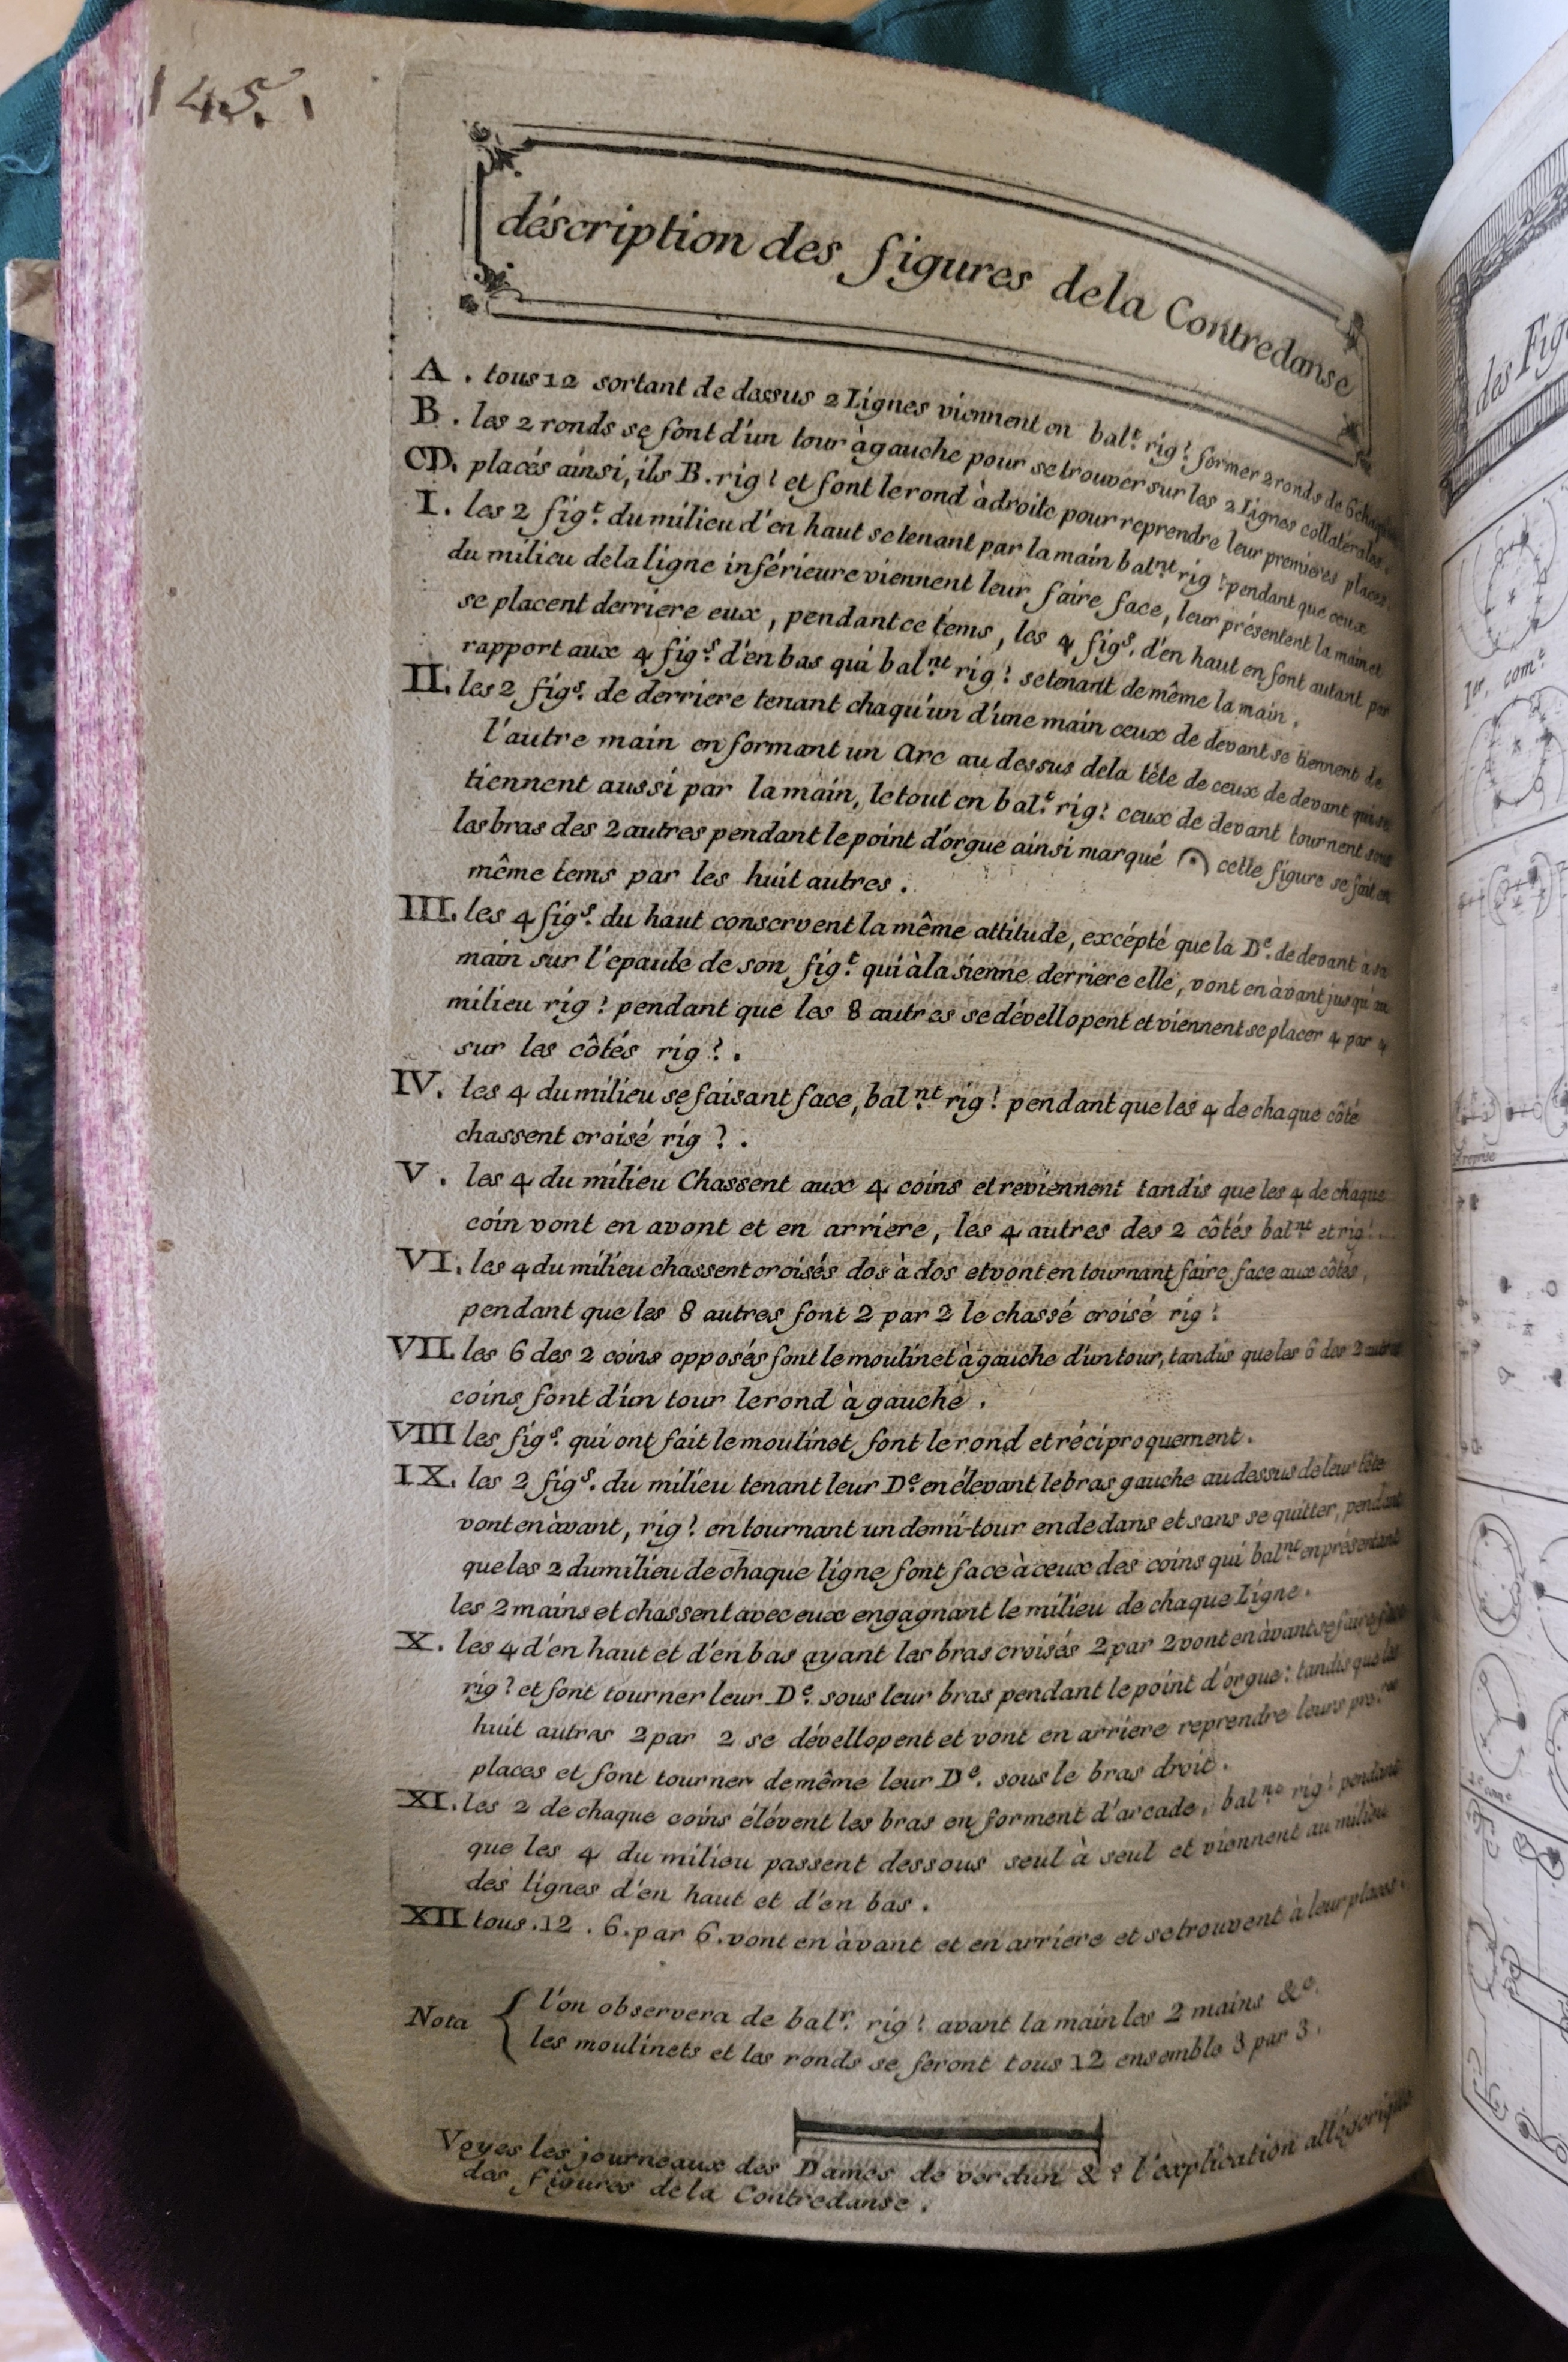 145.
déscription des figures dela Contredanse
A. tous 12 sortant de dessus 2 Lignes viennent en bal.t rig! former 2 ronds de 6 chaq
B. les 2 ronds se font d'un tour à gauche pour se trouver sur les 2 Lignes collatérales.
CD. placés ainsi, ils B. rig! et font le rond à droite pour reprendre leur premieres places
I. les 2 fig.t du milieu d'en haut se tenant par la main bal.nt rig! pendant que ceux
du milieu dela ligne inférieure viennent leur faire face, leur présentent la main et
se placent derriere eux, pendant ce tems, les 4 fig.s d'en haut en font autant par
rapport aux 4 fig.s d'en bas qui bal.nt rig! se tenant de même la main.
II. les 2 fig.s de derriere tenant chaqu'un d'une main ceux de devant se tiennent de
l'autre main en formant un Arc au dessus dela tête de ceux de devant qui se
tiennent aussi par la main, le tout en bal.t rig! ceux de devant tournent sous
les bras des 2 autres pendant le point d'orgue ainsi marqué 𝄐 cette figure se fait en
même tems par les huit autres.
III. les 4 fig.s du haut conservent la même attitude, excépté que la D.e de devant à sa
main sur l'epaule de son fig.t qui à la sienne derriere elle, vont en àvant jusqu'au
milieu rig! pendant que les 8 autres se dévellopent et viennent se placer 4 par 4
sur les côtés rig!.
IV. les 4 du milieu se faisant face, bal.nt rig! pendant que les 4 de chaque côté
chassent croisé rig!.
V. les 4 du milieu Chassent aux 4 coins et reviennent tandis que les 4 de chaque
coin vont en avant et en arriere, les 4 autres des 2 côtés bal.nt et rig!.
VI. les 4 du milieu chassent croisés dos à dos et vont en tournant faire face aux côtés,
pendant que les 8 autres font 2 par 2 le chassé croisé rig!
VII. les 6 des 2 coins opposés font le moulinet à gauche d'un tour, tandis que les 6 des 2 autres
coins font d'un tour le rond à gauche.
VIII les fig.s qui ont fait le moulinet, font le rond et réciproquement.
IX. les 2 fig.s du milieu tenant leur D.e en élevant le bras gauche au dessus de leur tête
vont en àvant, rig! en tournant un demi-tour en dedans et sans se quitter, pendant
que les 2 du milieu de chaque ligne font face à ceux des coins qui bal.nt en présentant
les 2 mains et chassent avec eux en gagnant le milieu de chaque Ligne.
X. les 4 d'en haut et d'en bas ayant les bras croisés 2 par 2 vont en àvant se faire face
rig! et font tourner leur D.e sous leur bras pendant le point d'orgue: tandis que les
huit autres 2 par 2 se dévellopent et vont en arriere reprendre leurs pre.res
places et font tourner de même leur D.e sous le bras droit.
XI. les 2 de chaque coins élévent les bras en forment d'arcade, bal.nt rig! pendant
que les 4 du milieu passent dessous seul à seul et viennent au milieu
des lignes d'en haut et d'en bas.
XII tous. 12. 6. par 6. vont en àvant et en arriere et se trouvent à leur places.
Nota { l'on observera de bal.r rig! avant la main les 2 mains &c.
les moulinets et les ronds se feront tous 12 ensemble 3 par 3.
Voyes les journeaux des Dames de verdun &c l'explication allégorique
des figures dela Contredanse.
des Fig
1er. com.e
reprise